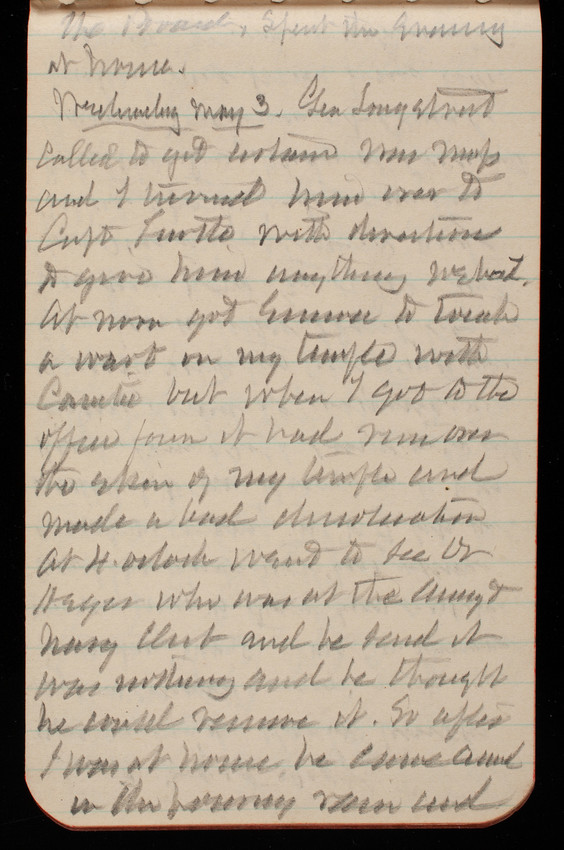 the Board, Spent the Evening
at home.
Wednesday May 3. Gen Longstreet
called to get certain war maps
and I turned him over to
Capt Tuttle with directions
to give him anything we had.
At noon got Emma to touch
a wart on my temple with
Caustic but when I got to the
office found it had run over
the skin of my temple and
made a bad discoloration
At 4 oclock went to see Dr
Heger who was at the Army &
Navy Club and he said it
was nothing and he thought
he could remove it. So after
I was at home he came and
in the pouring rain and